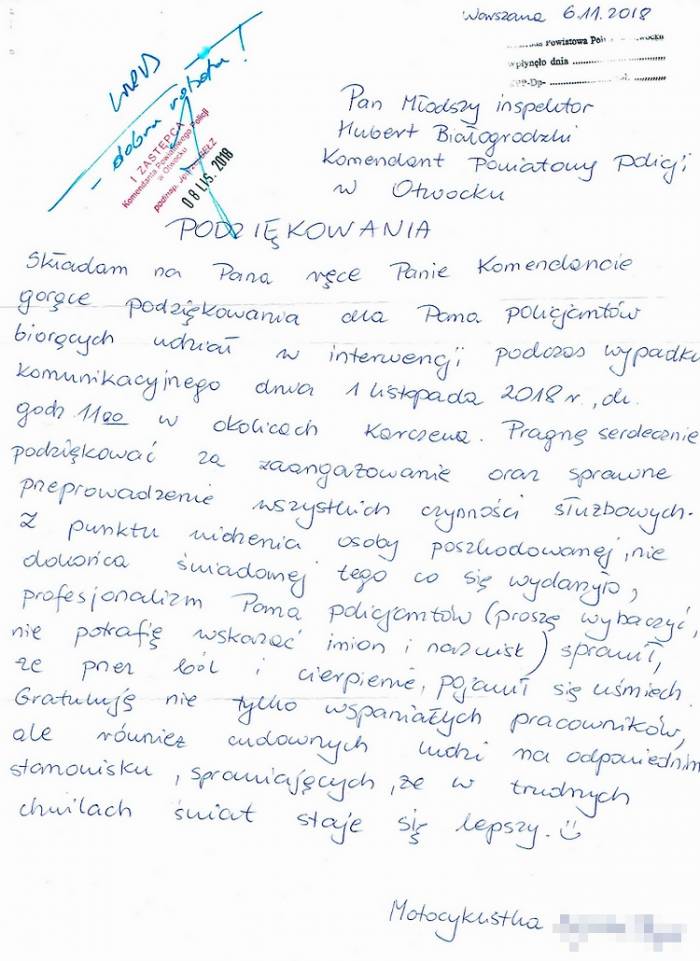 Warszawa 6.11.2018
Powiatowa
wpłynęło dnia
Pan Młodszy inspektor
Hubert Białogrodzki
Komendant Powiatowy Policji
w Otwocku
- dobra robota!
I ZASTĘPCA
Komendanta Powiatowego Policji
w Otwocku
08 LIS. 2018
PODZIĘKOWANIA
Składam na Pana ręce Panie Komendancie
gorące podziękowania dla Pana policjantów
biorących udział w interwencji podczas wypadku
komunikacyjnego dnia 1 listopada 2018 r., ok.
godz 1100 w okolicach Karczewa. Pragnę serdecznie
podziękować za zaangażowanie oraz sprawne
przeprowadzenie wszystkich czynności służbowych.
Z punktu widzenia osoby poszkodowanej, nie
dokońca świadomej tego co się wydarzyło,
profesjonalizm Pana policjantów (proszę wybaczyć,
nie potrafię wskazać imion i nazwisk) sprawił,
że przez ból i cierpienie, pojawił się uśmiech.
Gratuluję nie tylko wspaniałych pracowników,
ale również cudownych ludzi na odpowiednim
stanowisku, sprawiających, że w trudnych
chwilach świat staje się lepszy. ☺
Motocyklistka